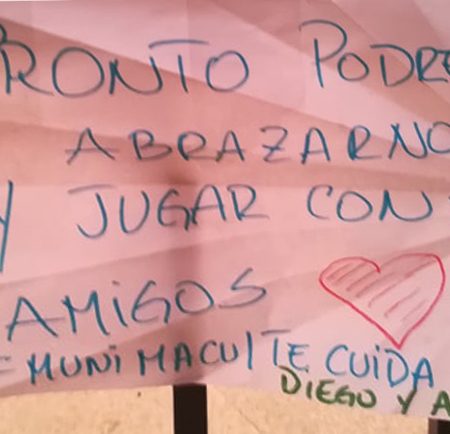 PRONTO PODRE
ABRAZARNO
Y JUGAR CON
AMiGOS
MUNi MACUL TE CUiDA
DIEGO Y A